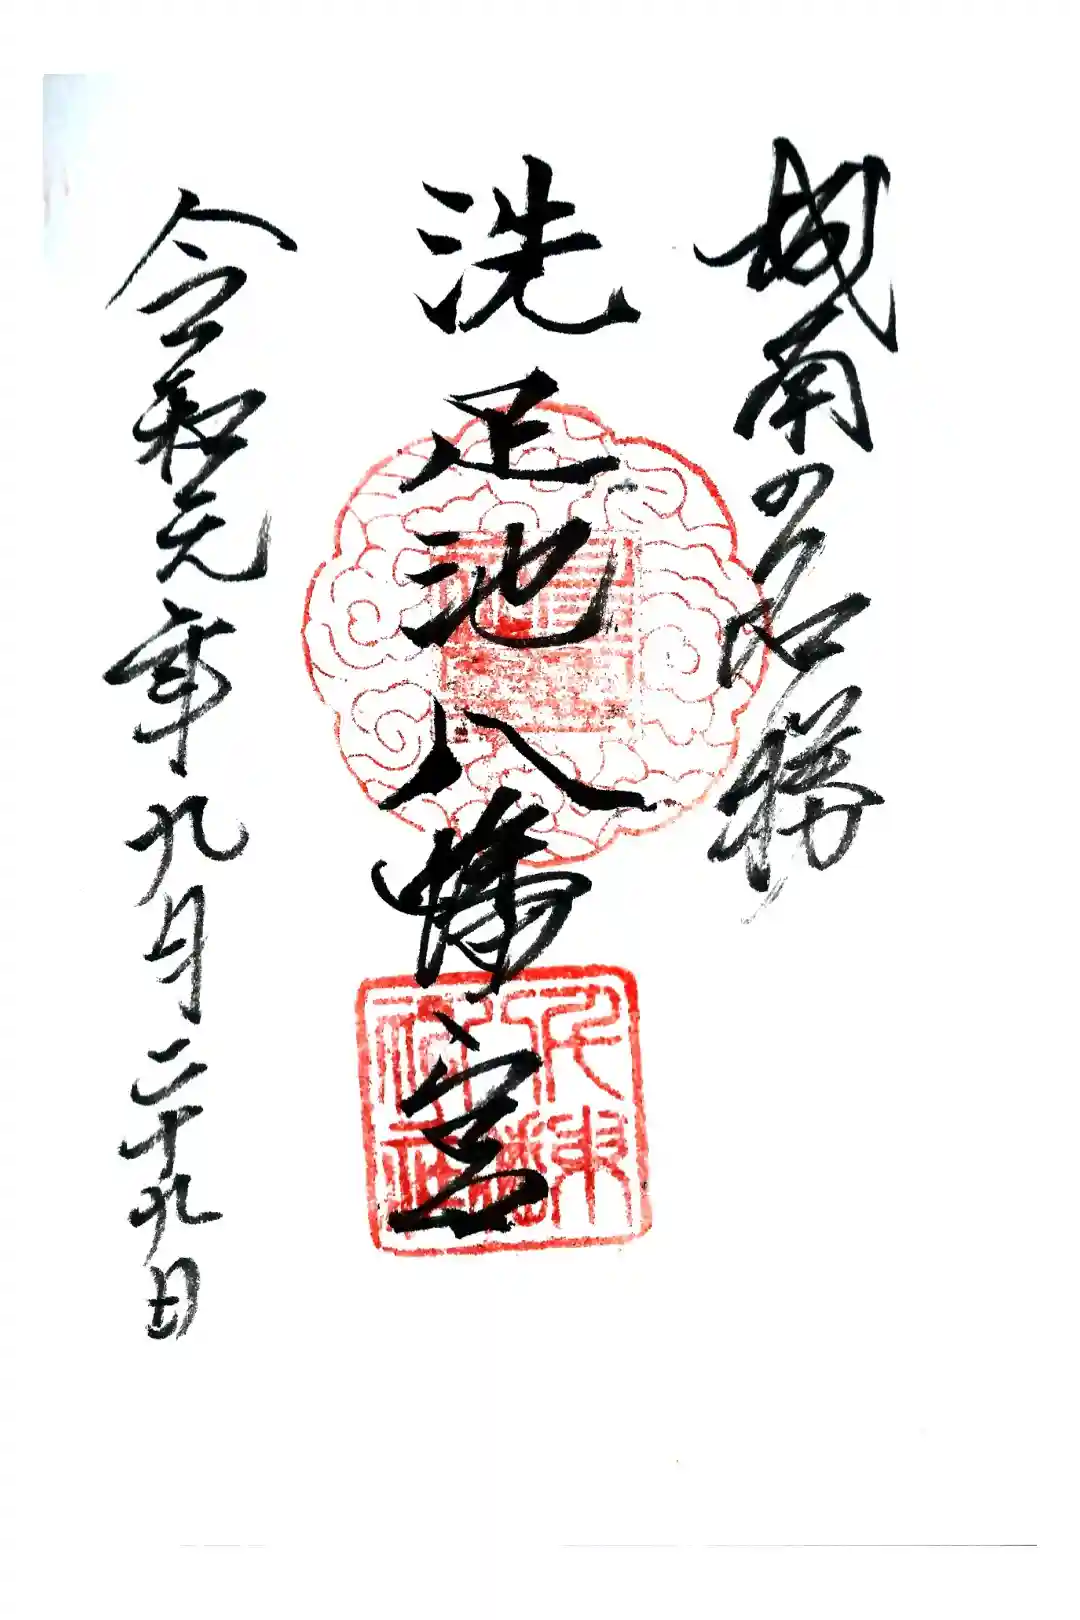 城南の名勝
洗足池八幡宮
令和元年九月二十九日